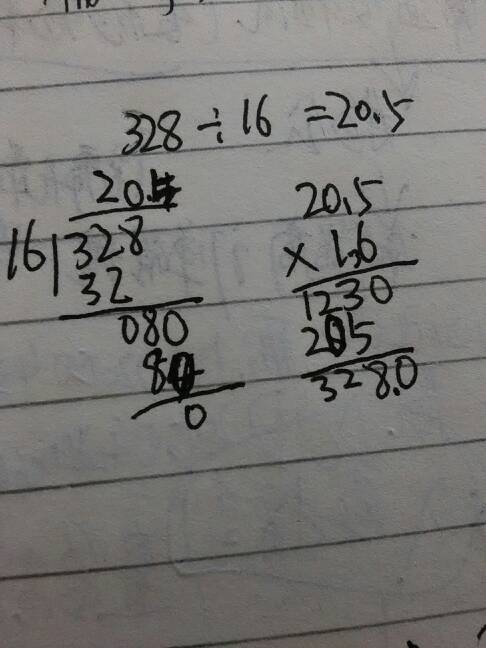 328÷16=20.5
20.5
16 328
32
080
80
0
20.5
×1.6
1230
205
328.0